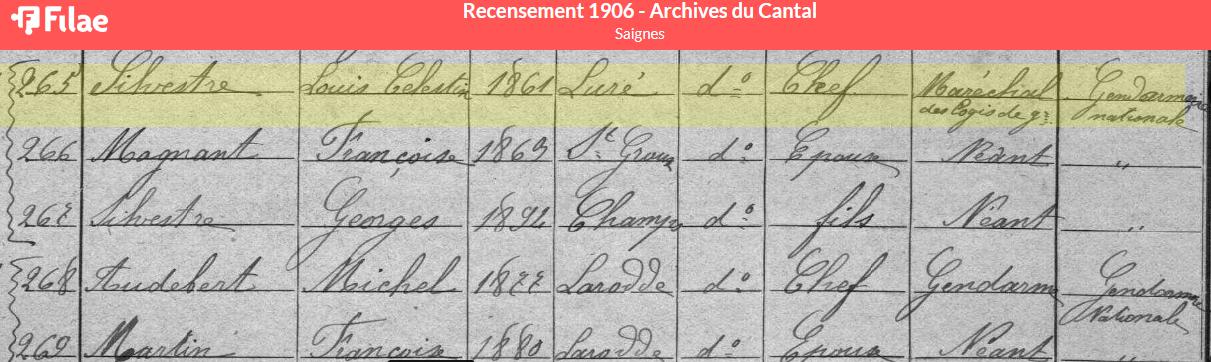 Filae
Recensement 1906 - Archives du Cantal
Saignes
265 Silvestre Louis Celestin 1861 Luré do Chef Maréchal des Logis de gie Gendarmerie nationale
266 Magnant Françoise 1869 St Groux do Epouse Néant "
267 Silvestre Georges 1892 Champs do fils Néant "
268 Audebert Michel 1877 Larodde do Chef Gendarme Gendarmerie Nationale
269 Martin Françoise 1880 Larodde do Epouse Néant